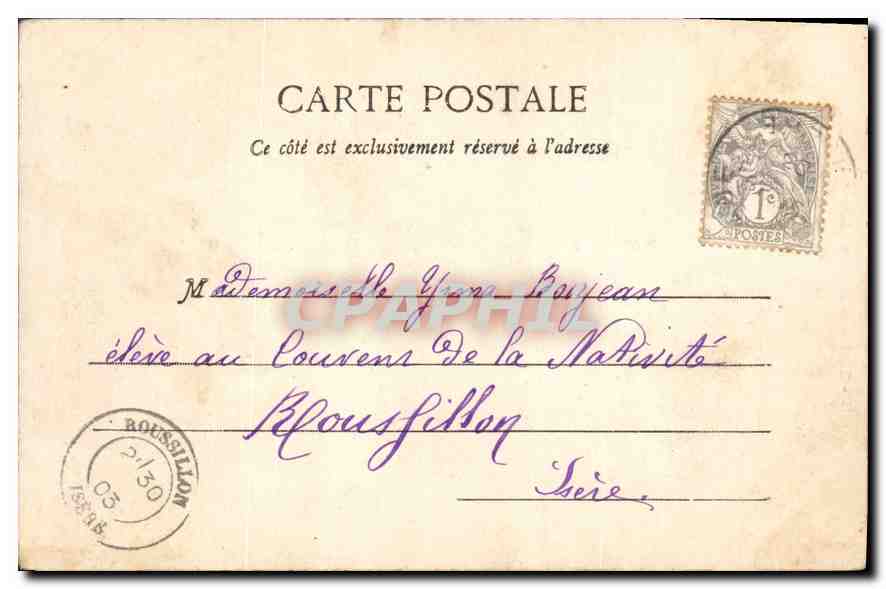 CARTE POSTALE
Ce côté est exclusivement réservé à l'adresse
1c
POSTES
Mademoiselle Yma Boujean
CPAPHIL
élève au Couvent de la Nativité
Roussillon
Isère.
ROUSSILLON
30
03
ISÈRE